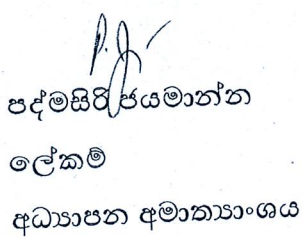 පද්මසිරි ජයමාන්න
ලේකම්
අධ්‍යාපන අමාත්‍යාංශය